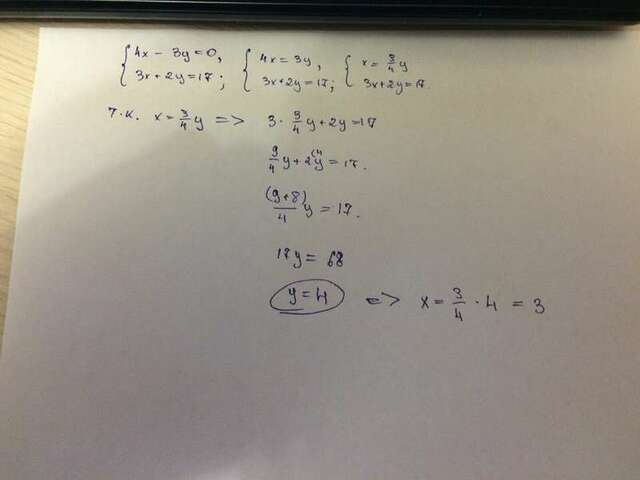 {4x - 3y = 0, {4x = 3y, {x = 3/4 y
3x + 2y = 17; 3x + 2y = 17; 3x + 2y = 17.
т.к. x = 3/4 y => 3 · 3/4 y + 2y = 17
9/4 y + 2y (4 = 17.
(9+8)/4 y = 17.
17y = 68
y = 4 => x = 3/4 · 4 = 3